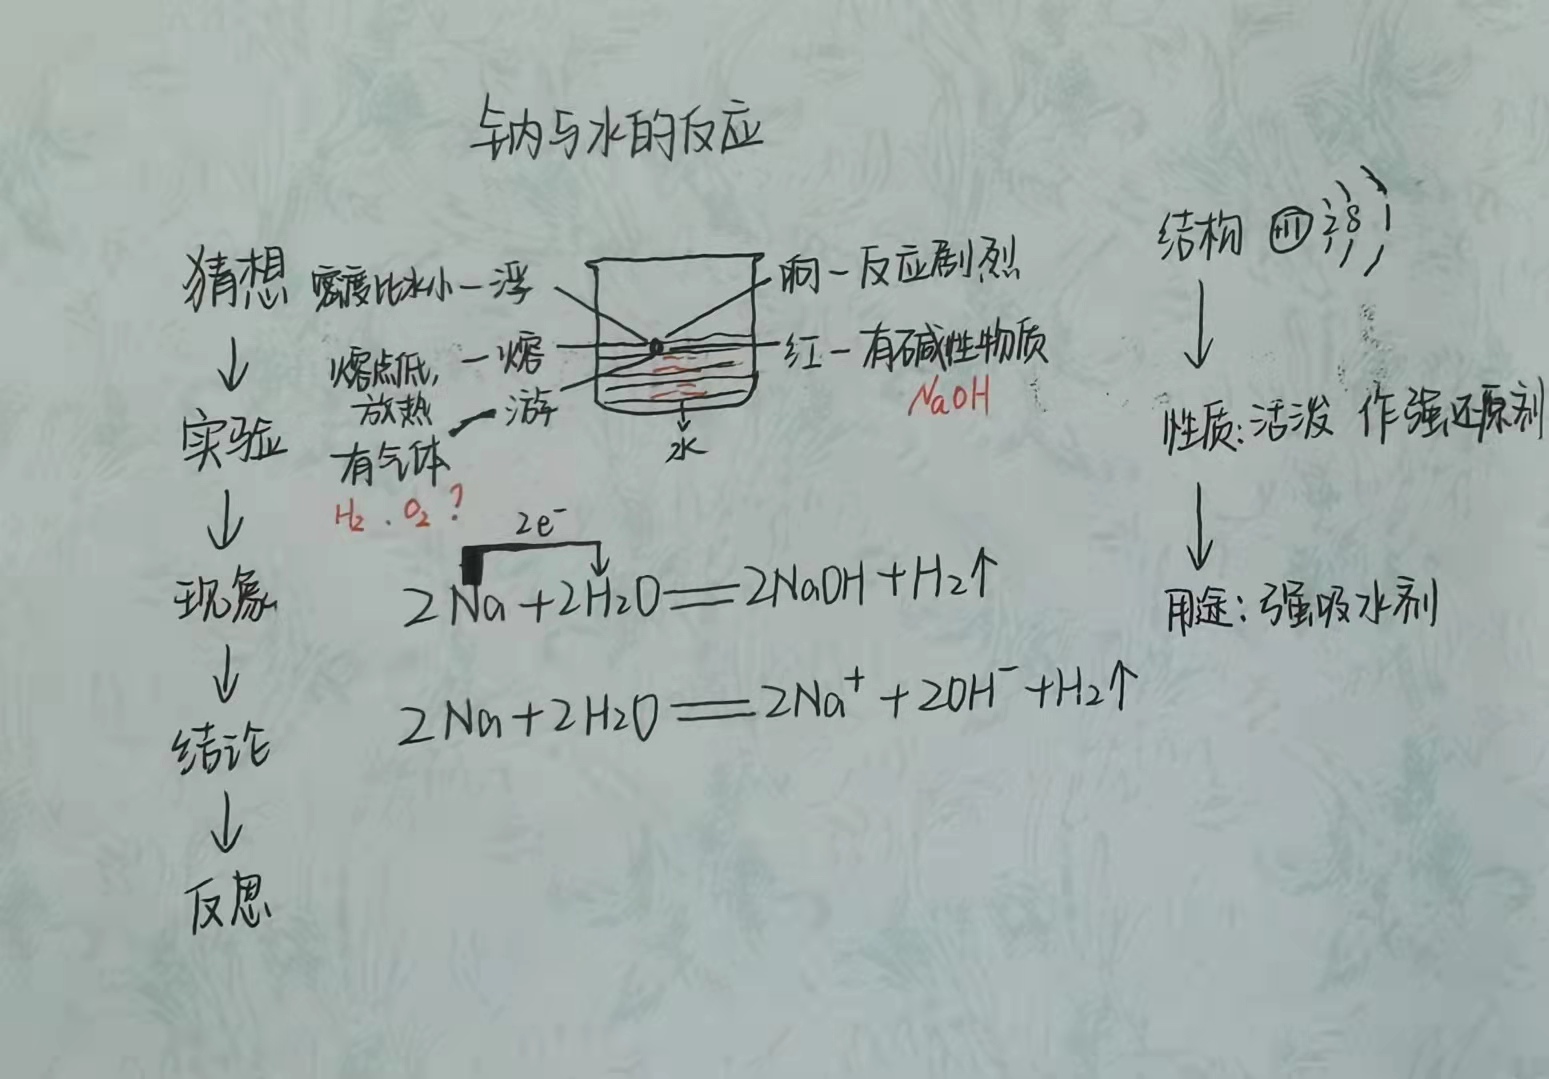 钠与水的反应
猜想
↓
实验
↓
现象
↓
结论
↓
反思
密度比水小—浮
熔点低,—熔
放热
有气体—游
H₂、O₂?
响—反应剧烈
红—有碱性物质
NaOH
水
2e⁻
2Na+2H₂O══2NaOH+H₂↑
2Na+2H₂O══2Na⁺+2OH⁻+H₂↑
结构 +11 2 8 1
↓
性质:活泼 作强还原剂
↓
用途:强吸水剂